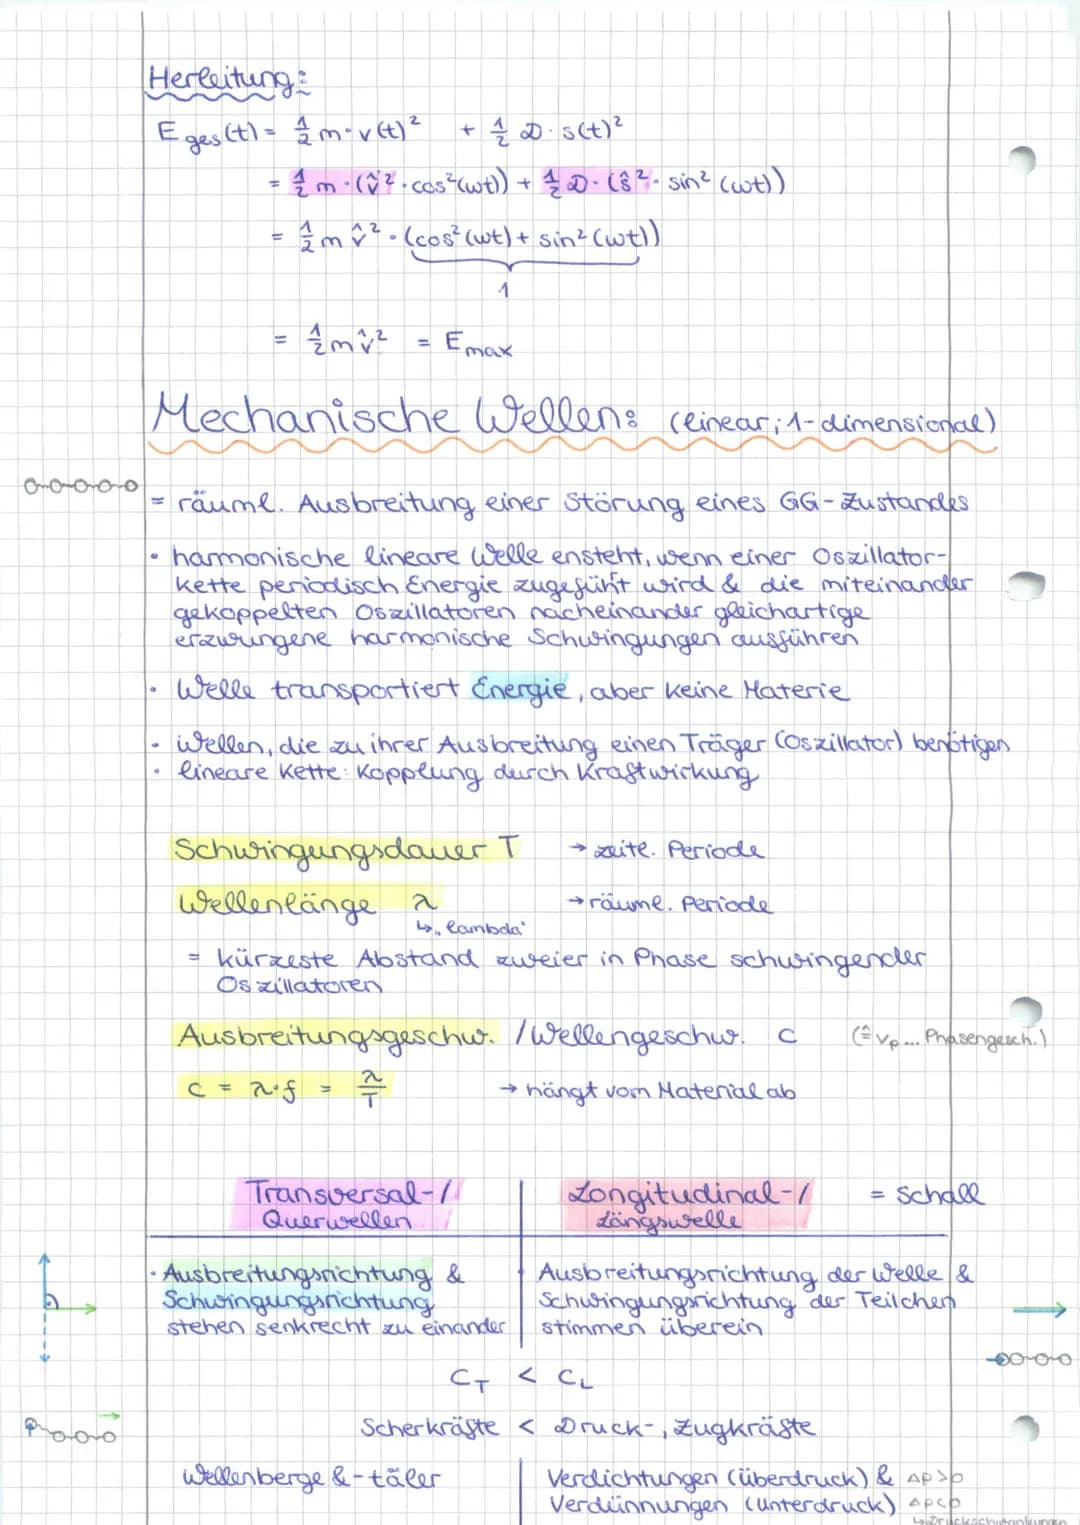 Herleitung:
E ges (t) = 1/2 m · v(t)² + 1/2 D · s(t)²
= 1/2 m · (v̂² · cos²(ωt)) + 1/2 D · (ŝ² · sin²(ωt))
= 1/2 m v̂² · (cos²(ωt) + sin²(ωt))
1
= 1/2 m v̂² = E max
Mechanische Wellen: (linear; 1-dimensional)
= räuml. Ausbreitung einer Störung eines GG-Zustandes
• harmonische lineare Welle ensteht, wenn einer Oszillator-
kette periodisch Energie zugeführt wird & die miteinander
gekoppelten Oszillatoren nacheinander gleichartige
erzwungene harmonische Schwingungen ausführen
• Welle transportiert Energie, aber keine Materie
• Wellen, die zu ihrer Ausbreitung einen Träger (Oszillator) benötigen
• lineare Kette: Kopplung durch Kraftwirkung
Schwingungsdauer T → zeitl. Periode
Wellenlänge λ → räuml. Periode
↳ „lambda"
= kürzeste Abstand zweier in Phase schwingender
Oszillatoren
Ausbreitungsgeschw. / Wellengeschw. c (≙ vp ... Phasengesch.)
c = λ · f = λ/T → hängt vom Material ab
Transversal-/ Longitudinal-/ = Schall
Querwellen Längswelle
• Ausbreitungsrichtung & Ausbreitungsrichtung der Welle &
Schwingungsrichtung Schwingungsrichtung der Teilchen
stehen senkrecht zu einander stimmen überein
CT < CL
Scherkräfte < Druck-, Zugkräfte
Wellenberge & -täler Verdichtungen (Überdruck) & Δp>0
Verdünnungen (Unterdruck) Δp<0
↳ Druckschwankungen